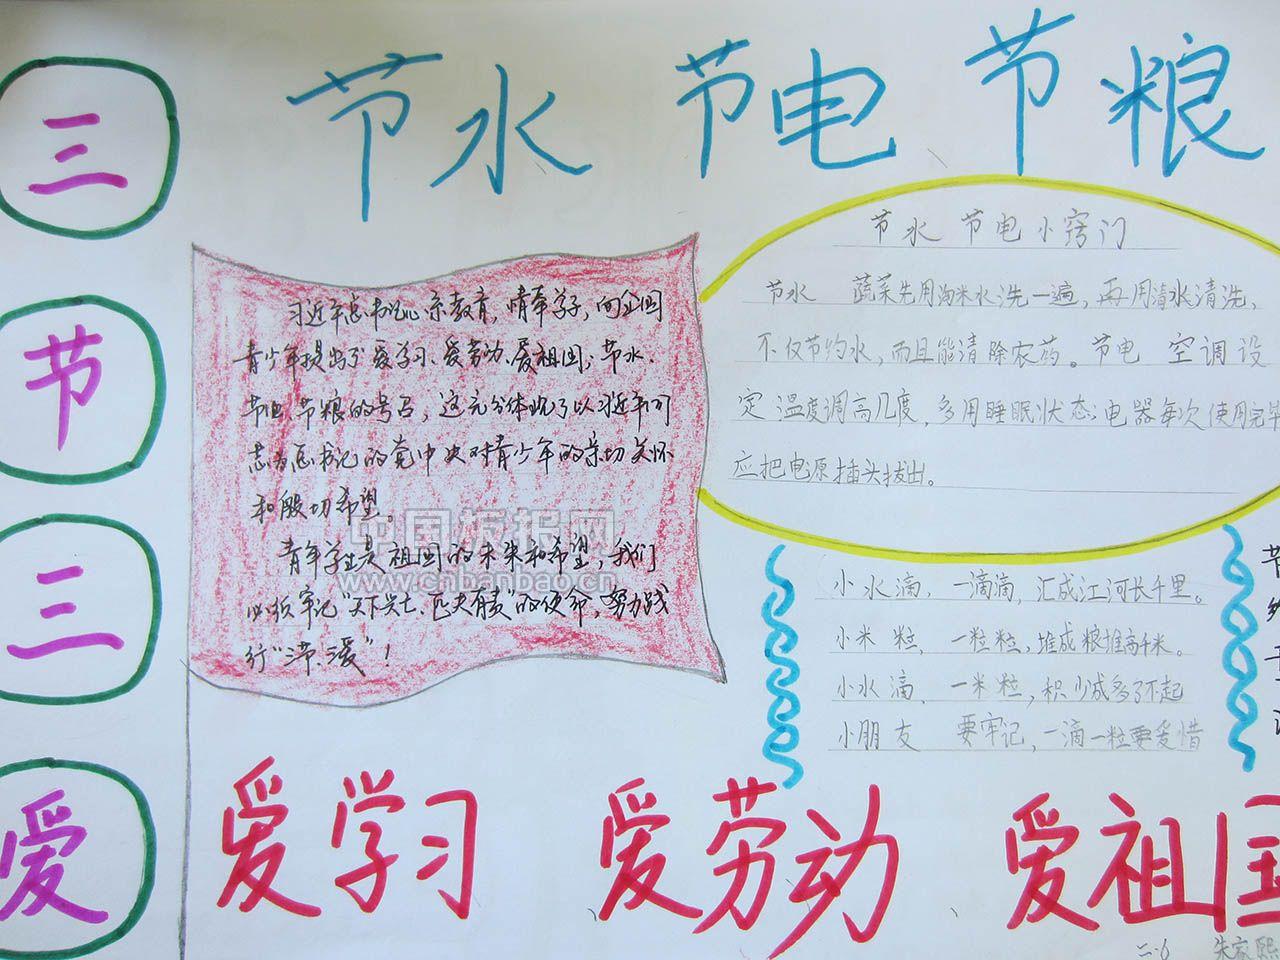 三
节
三
爱
节水 节电 节粮
习近平总书记心系教育,情牵学子,向全国
青少年提出了爱学习、爱劳动、爱祖国;节水、
节电、节粮的号召,这充分体现了以习近平同
志为总书记的党中央对青少年的亲切关怀
和殷切希望。
青年学生是祖国的未来和希望,我们
必须牢记"天下兴亡、匹夫有责"的使命,努力践
行"三节、三爱"!
中国板报网
www.cnbanbao.cn
节水 节电小窍门
节水 蔬菜先用淘米水洗一遍,再用清水清洗,
不仅节约水,而且能清除农药。节电 空调设
定温度调高几度,多用睡眠状态;电器每次使用完毕
应把电源插头拔出。
小水滴,一滴滴,汇成江河长千里。
小米粒,一粒粒,堆成粮堆高千米。
小水滴、一米粒,积少成多了不起
小朋友 要牢记,一滴一粒要爱惜
爱学习 爱劳动 爱祖国
二.6 朱家熙